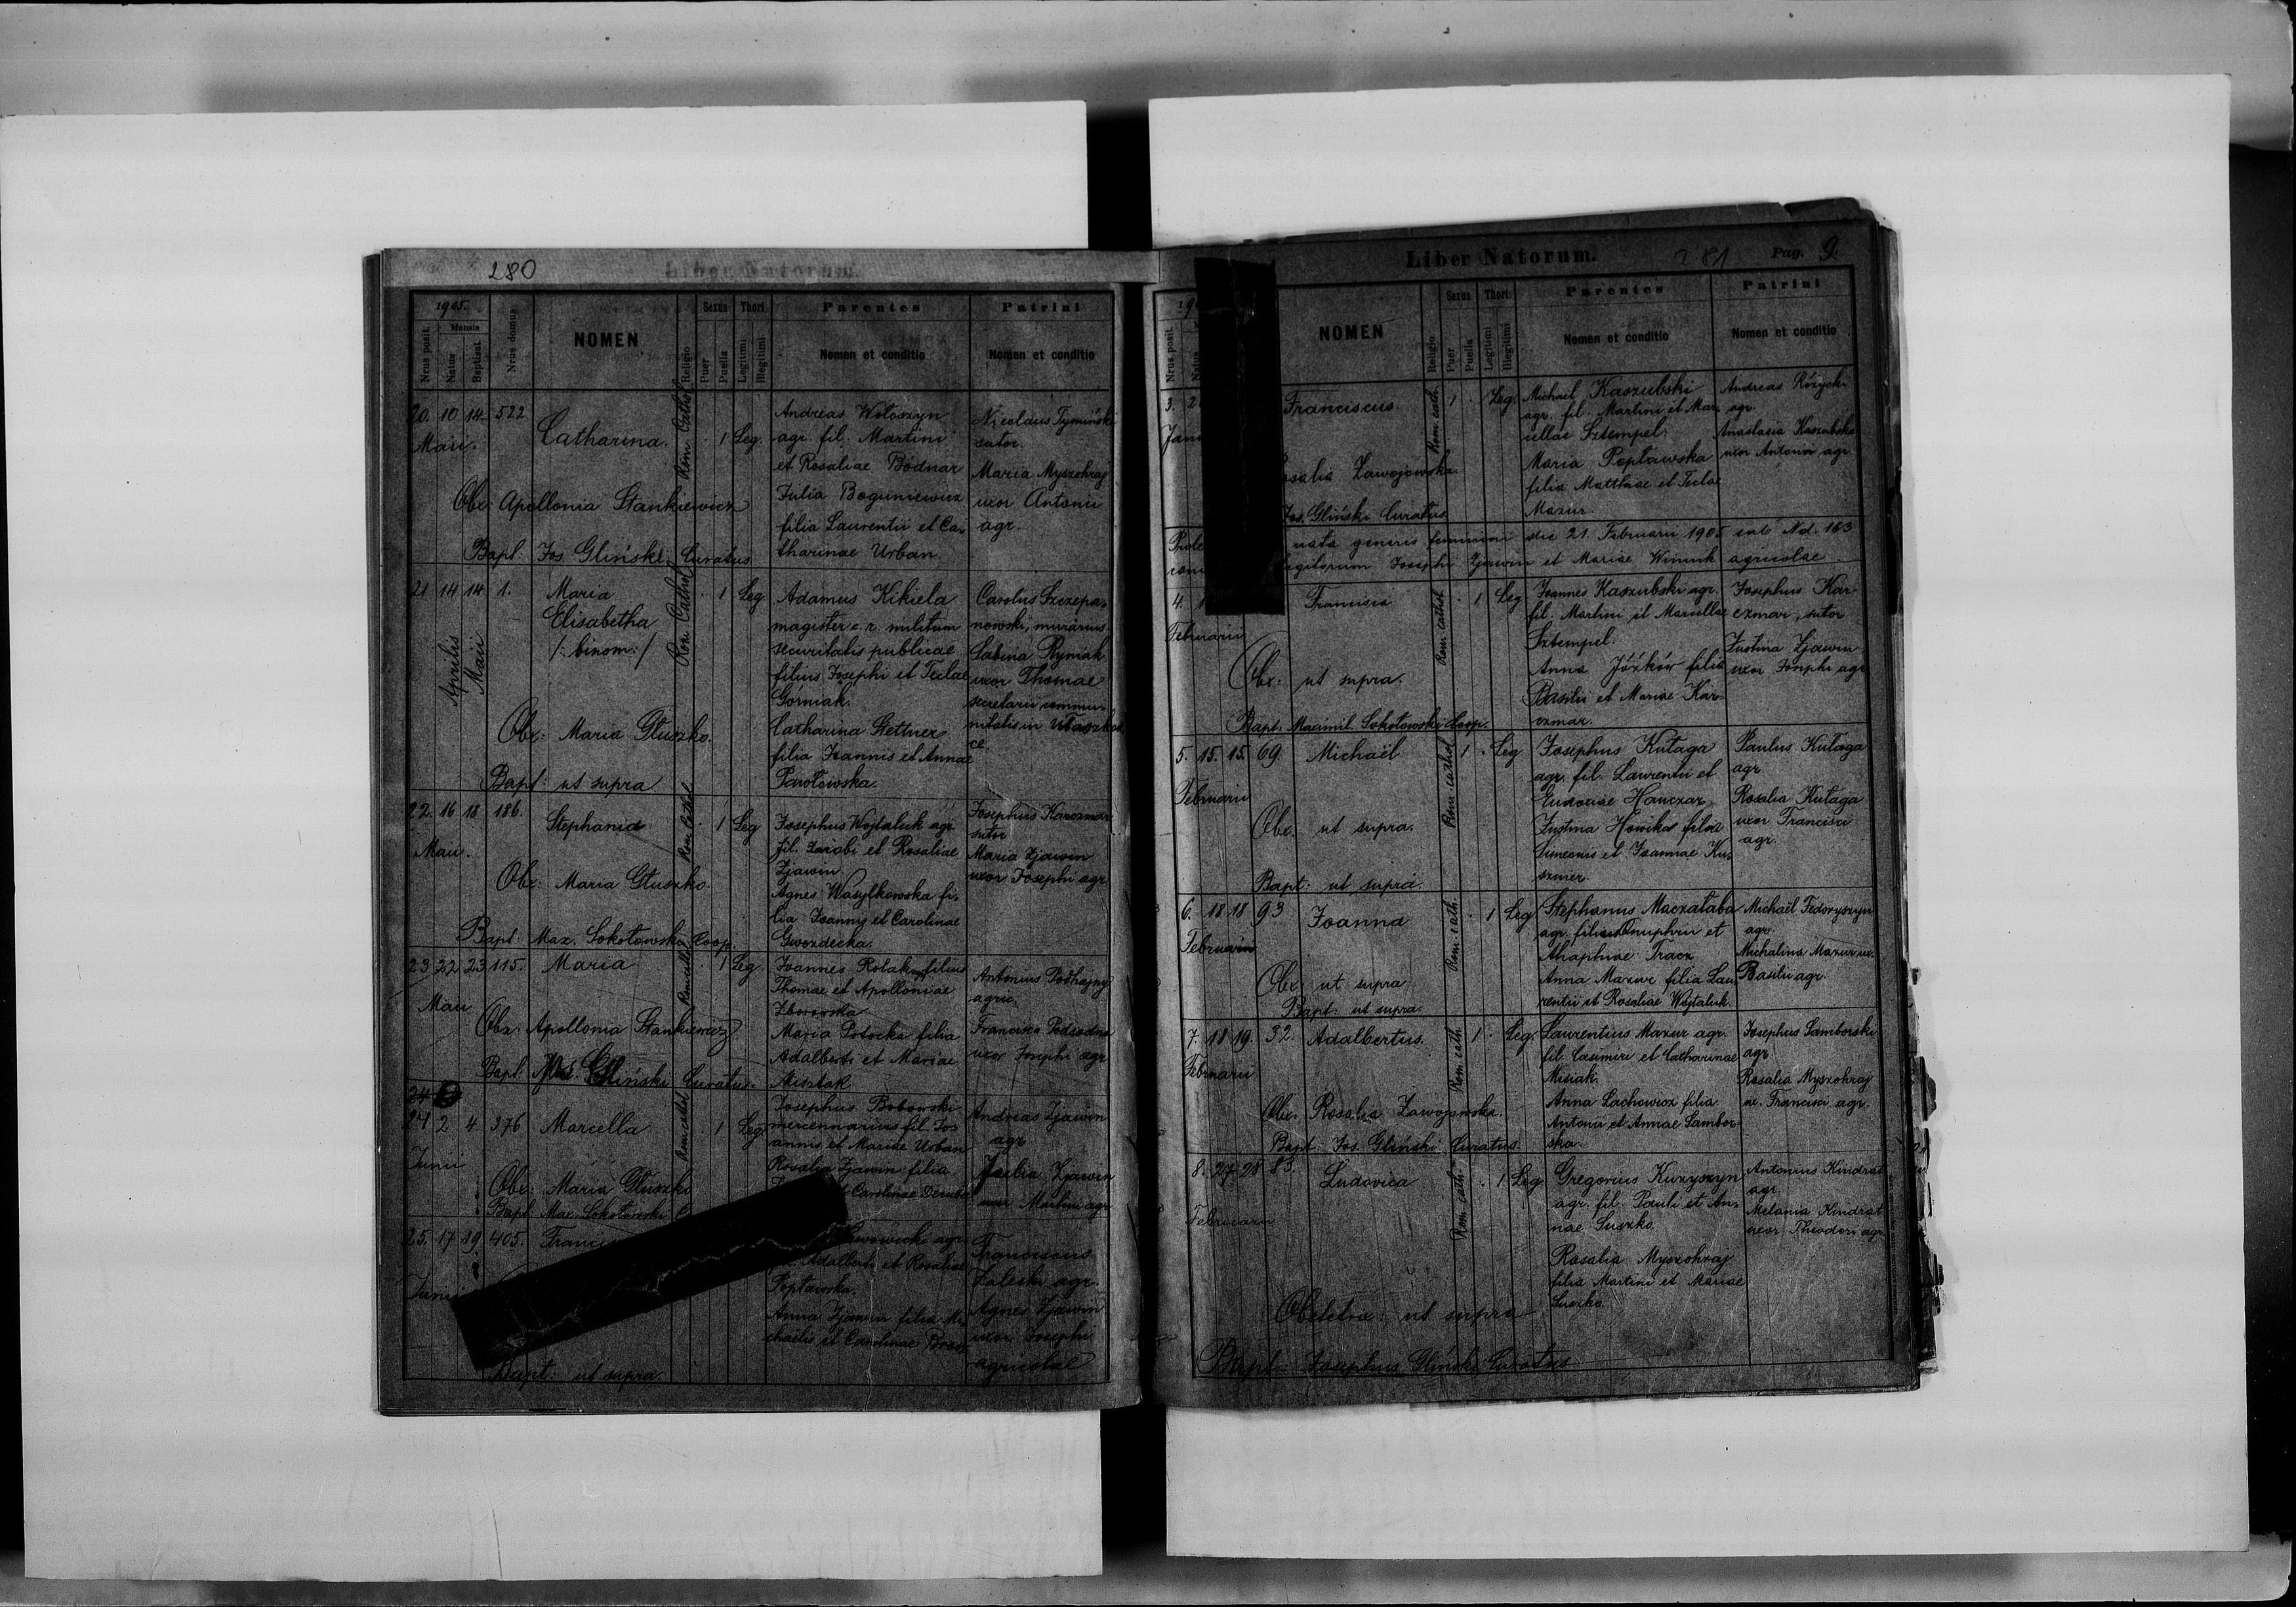 280
Liber Natorum.
1905.
Nrus posit.
Mensis
Natus
Baptisat.
Nrus domus
NOMEN
Religio
Sexus
Puer
Puella
Thori
Legitimi
Illegitimi
Parentes
Nomen et conditio
Patrini
Nomen et conditio
20. 10 14. 522
Maii.
Catharina.
Rom. Cathol.
1 Leg.
Andreas Wołoszyn
agr. fil. Martini
et Rosaliae Bodnar
Julia Boguniewicz
filia Laurentii et Ca-
tharinae Urban
Nicolaus Tymiński
sutor.
Maria Myszohraj
uxor Antonii
agr.
Obx Apollonia Stankiewicz
Bapt: Jos. Gliński Curatus
21 14 14 1.
Aprilis
Maii
Maria
Elisabetha
/: binom :/
Rom. Cathol.
1 Leg.
Adamus Kikiela
magister c. r. militum
securitatis publicae
filius Josephi et Teclae
Górniak.
Catharina Stettner
filia Joannis et Annae
Pawłowska.
Carolus Szczepa-
nowski, murarius
Sabina Ryniak
uxor Thomae
secretarii commu-
nitatis in
Obx: Maria Głuszko.
Bapt: ut supra
22. 16 18 186.
Maii.
Stephania
Rom. Cathol.
1 Leg
Josephus Wojtaluk agr.
fil. Jacobi et Rosaliae
Zjawin
Agnes Wasylkowska fi-
lia Joannis et Carolinae
Gwozdecka.
Josephus Karczmar
sutor
Maria Zjawin
uxor Josephi agr.
Obx: Maria Głuszko.
Bapt: Max. Sokołowski Coop.
23 22 23 115.
Maii
Maria
Rom. cathol.
1 Leg
Joannes Rolak filius
Thomae et Apolloniae
Zborowska
Maria Potocka filia
Adalberti et Mariae
Misztak
Antonius Podhajny
agric.
Francisca Podsodna
uxor Josephi agr
Obx: Apollonia Stankiewicz
Bapt. Jos. Gliński Curatus.
24
24 2 4. 376
Junii
Marcella
Rom. cathol
1 Leg
Josephus Bobowski
mercennarius fil. Jo-
annis et Mariae Urban
Rosalia Zjawin filia
et Carolinae
Andreas Zjawin
agr
Zjawin
uxor Martini agr
Obx: Maria Głuszko
Bapt: Max. Sokołowski
25. 17 19 405.
Junii
agr
Adalberti et Rosaliae
Popławska.
Anna Zjawin filia Mi-
chaelis et Carolinae
Franciscus
Zaleski agr.
Agnes Zjawin
uxor Josephi
agricolae
Bapt: ut supra
Liber Natorum.
281
Pag. 9.
Nrus posit.
NOMEN
Religio
Sexus
Puer
Puella
Thori
Legitimi
Illegitimi
Parentes
Nomen et conditio
Patrini
Nomen et conditio
3. 2
Franciscus.
Rom. cath.
1 Leg.
Michael Kaszubski
agr. fil. Martini et Mar-
cellae Sztempel.
Maria Popławska
filia Matthiae et Teclae
Mazur
Andreas Różycki
agr.
Anastasia Kaszubska
uxor Antonii agr.
Zawojowska
Jos. Gliński Curatus
nata generis feminini die 21. Februarii 1905 sub Nd. 163
Josephi Zjawin et Mariae Winnik agricolae
4.
Februarii
Francisca
Rom cathol.
1 Leg
Joannes Kaszubski agr.
fil. Martini et Marcellae
Sztempel.
Anna Józków filia
Basilii et Mariae Kar-
czmar.
Josephus Kar-
czmar, sutor
Justina Zjawin
uxor Josephi agr
Obx: ut supra.
Bapt. Maximil. Sokołowski Coop.
5. 15. 15. 69.
Februarii
Michaël
Rom cathol
1 Leg
Josephus Kutaga
agr. fil. Laurentii et
Eudociae Hanczar
Justina Howika filia
Simeonis et Joannae Ku-
szner.
Paulus Kutaga
agr.
Rosalia Kutaga
uxor Francisci
agr.
Obx. ut supra.
Bapt: ut supra.
6. 18 18 93
Februarii
Joanna
Rom. cath.
1 Leg
Stephanus Maczałaba
agr. filius Onuphrii et
Ahaphiae Tracz
Anna Mazur filia Lau-
rentii et Rosaliae Wojtaluk
Michaël Fedoryszyn
agr.
Michalina Mazur ux.
Basilii agr.
Obx ut supra
Bapt. ut supra.
7. 18 19. 32.
Februarii
Adalbertus.
Rom. cath
1 Leg.
Laurentius Mazur agr.
fil. Casimiri et Catharinae
Misiak.
Anna Lachowicz filia
Antonii et Annae Sambor-
ska.
Josephus Samborski
agr
Rosalia Myszohraj
ux. Francisci agr.
Obx. Rosalia Zawojowska.
Bapt. Jos. Gliński Curatus.
8. 27 28 83.
Februarii
Ludovica
Rom. cath.
1 Leg
Gregorius Kuryszyn
agr. fil. Pauli et An-
nae Suszko.
Rosalia Myszohraj
filia Martini et Mariae
Suszko.
Antonius Kindrat
agr.
Melania Kindrat
uxor Theodori agr.
Obstetrix: ut supra
Bapt. Josephus Gliński Curatus